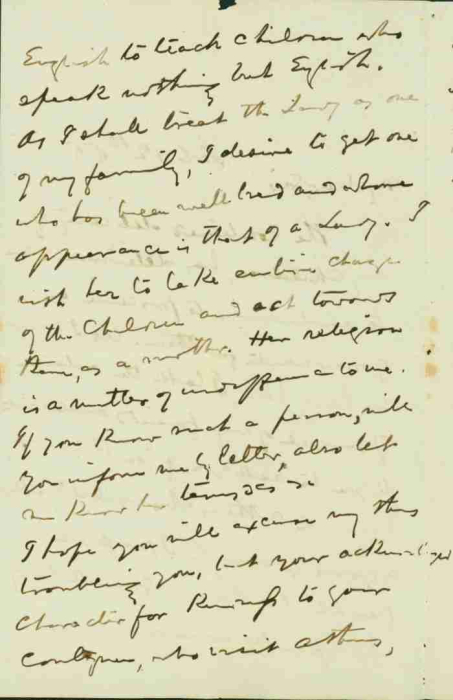 English to teach children who
speak nothing but English.
As I shall treat the Lady as one
of my family, I desire to get one
who has been well bred and whose
appearance is that of a Lady. I
wish her to take entire charge
of the Children and act towards
them, as a mother. Her religion
is a matter of indifference to me.
If you know such a person, will
you inform me by letter, also let
me know her terms
I hope you will excuse my thus
troubling you, but your acknowledged
character for kindness to your
who visit Athens,